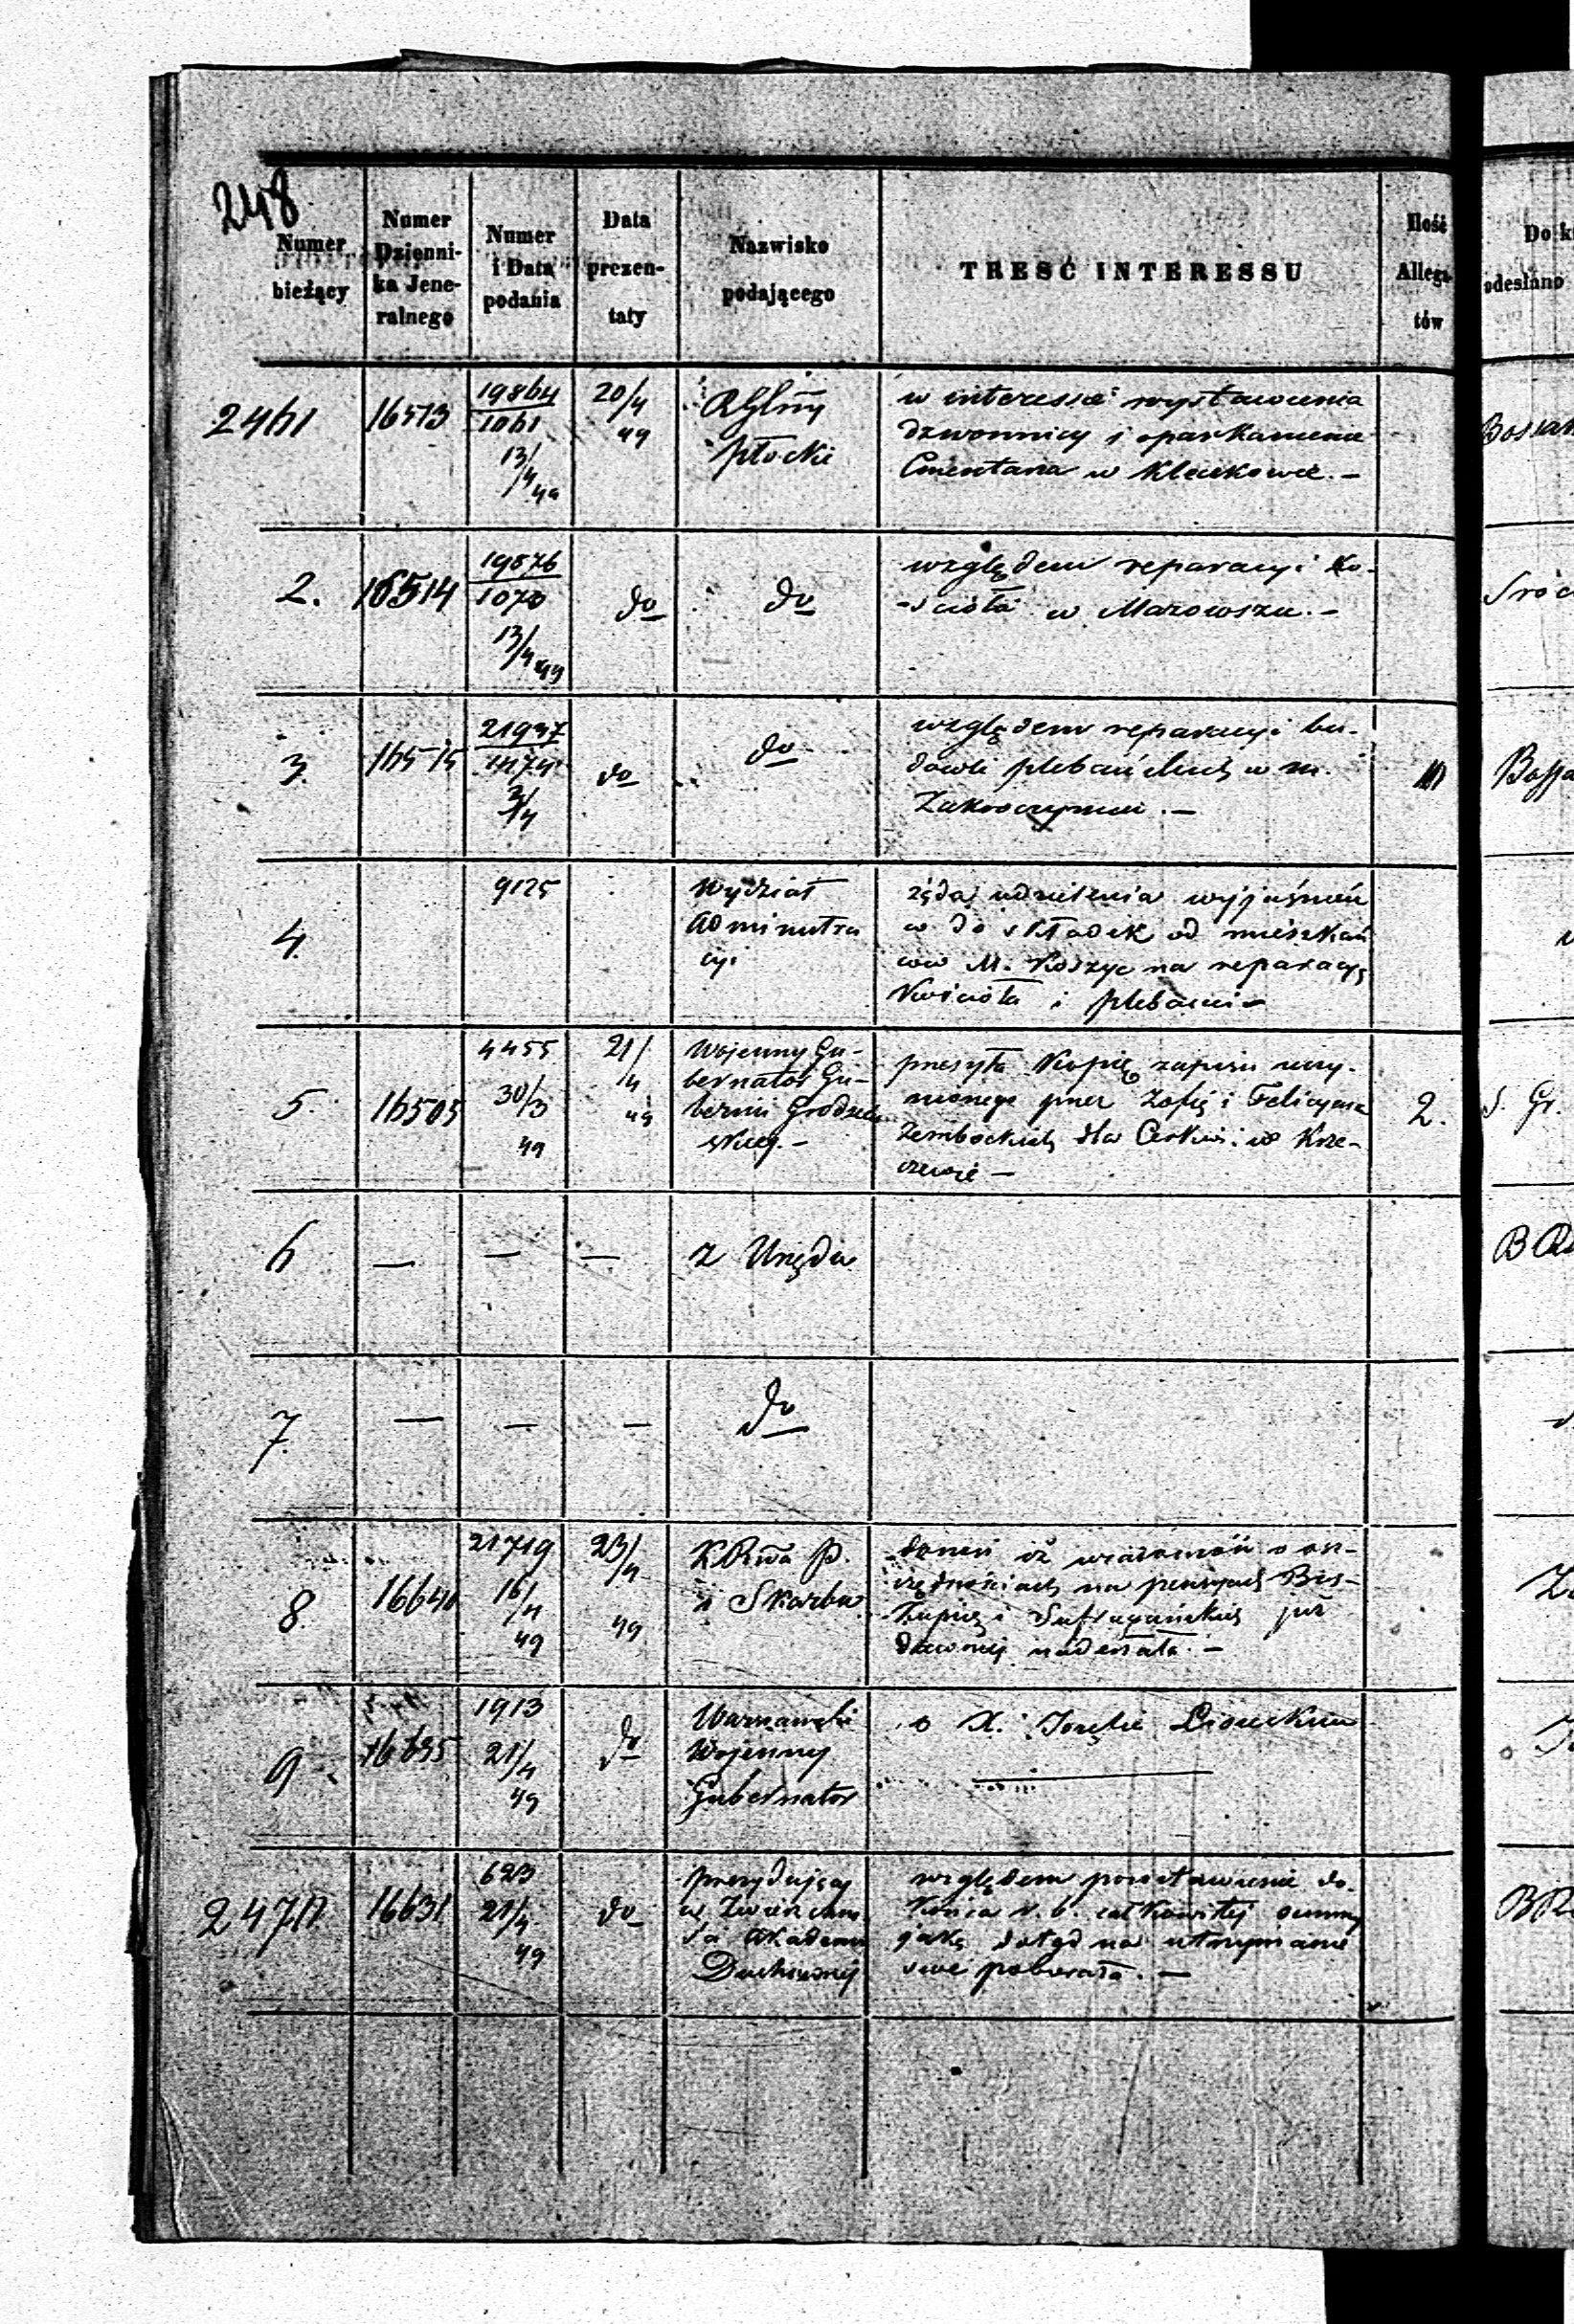 248
Numer
bieżący
Numer
Dzienni-
ka Jene-
ralnego
Numer
i Data
podania
Data
prezen-
taty
Nazwisko
podającego
TRESĆ INTERESSU
Ilość
Allega-
tów
Do k
odesłano
2461
16513
19864
1061
13/4 49
20/4
49
RGLny
płocki
w interessie wystawienia
dzwonnicy i oparkanienia
Cmentarza w Kleczkowie. —
2.
16514
19876
1070
13/4 49
do
do
względem reparacyi Ko-
-scioła w Mazowszu. —
3.
16515
21937
1474
2/4
do
do
względem reparacyi bu-
dowli plebańskich w m.
Zakroczymiu. —
4.
9125
Wydział
Administra
cyi
żąda udzielenia wyjaśnień
w do składek od mieszkań
ców M. Koszyc na reparacyę
Kościoła i plebanii —
5.
16505
4455
30/3
49
21/4
49
Wojenny Gu-
bernator Gu-
bernii Grodzień
skiey. —
przesyła Kopię zapisu uczy-
nionego przez Zofię i Felicyana
dla Cerkwi w Krze-
czewie —
2.
S. Gr.
6
—
—
—
z Urzędu
7.
—
—
—
do
8.
16640
21719
16/4
49
23/4
49
K R P.
i Skarbu
donosi iż wiadomość o osz-
czędnościach na pensyach Bis-
kupich i Sufragańskich już
dawniej nadesłała. —
9
16635
1913
21/4
49
do
Warszawski
Wojenny
Gubernator
o X. Józefie
2470
16631
623
21/4
49
do
prezydujący
w Zwierzchno
ści Akademii
Duchownej
względem pozostawienia do
Końca r. b. całkowitej summy
jaką dotąd na utrzymanie
swe pobierała. —